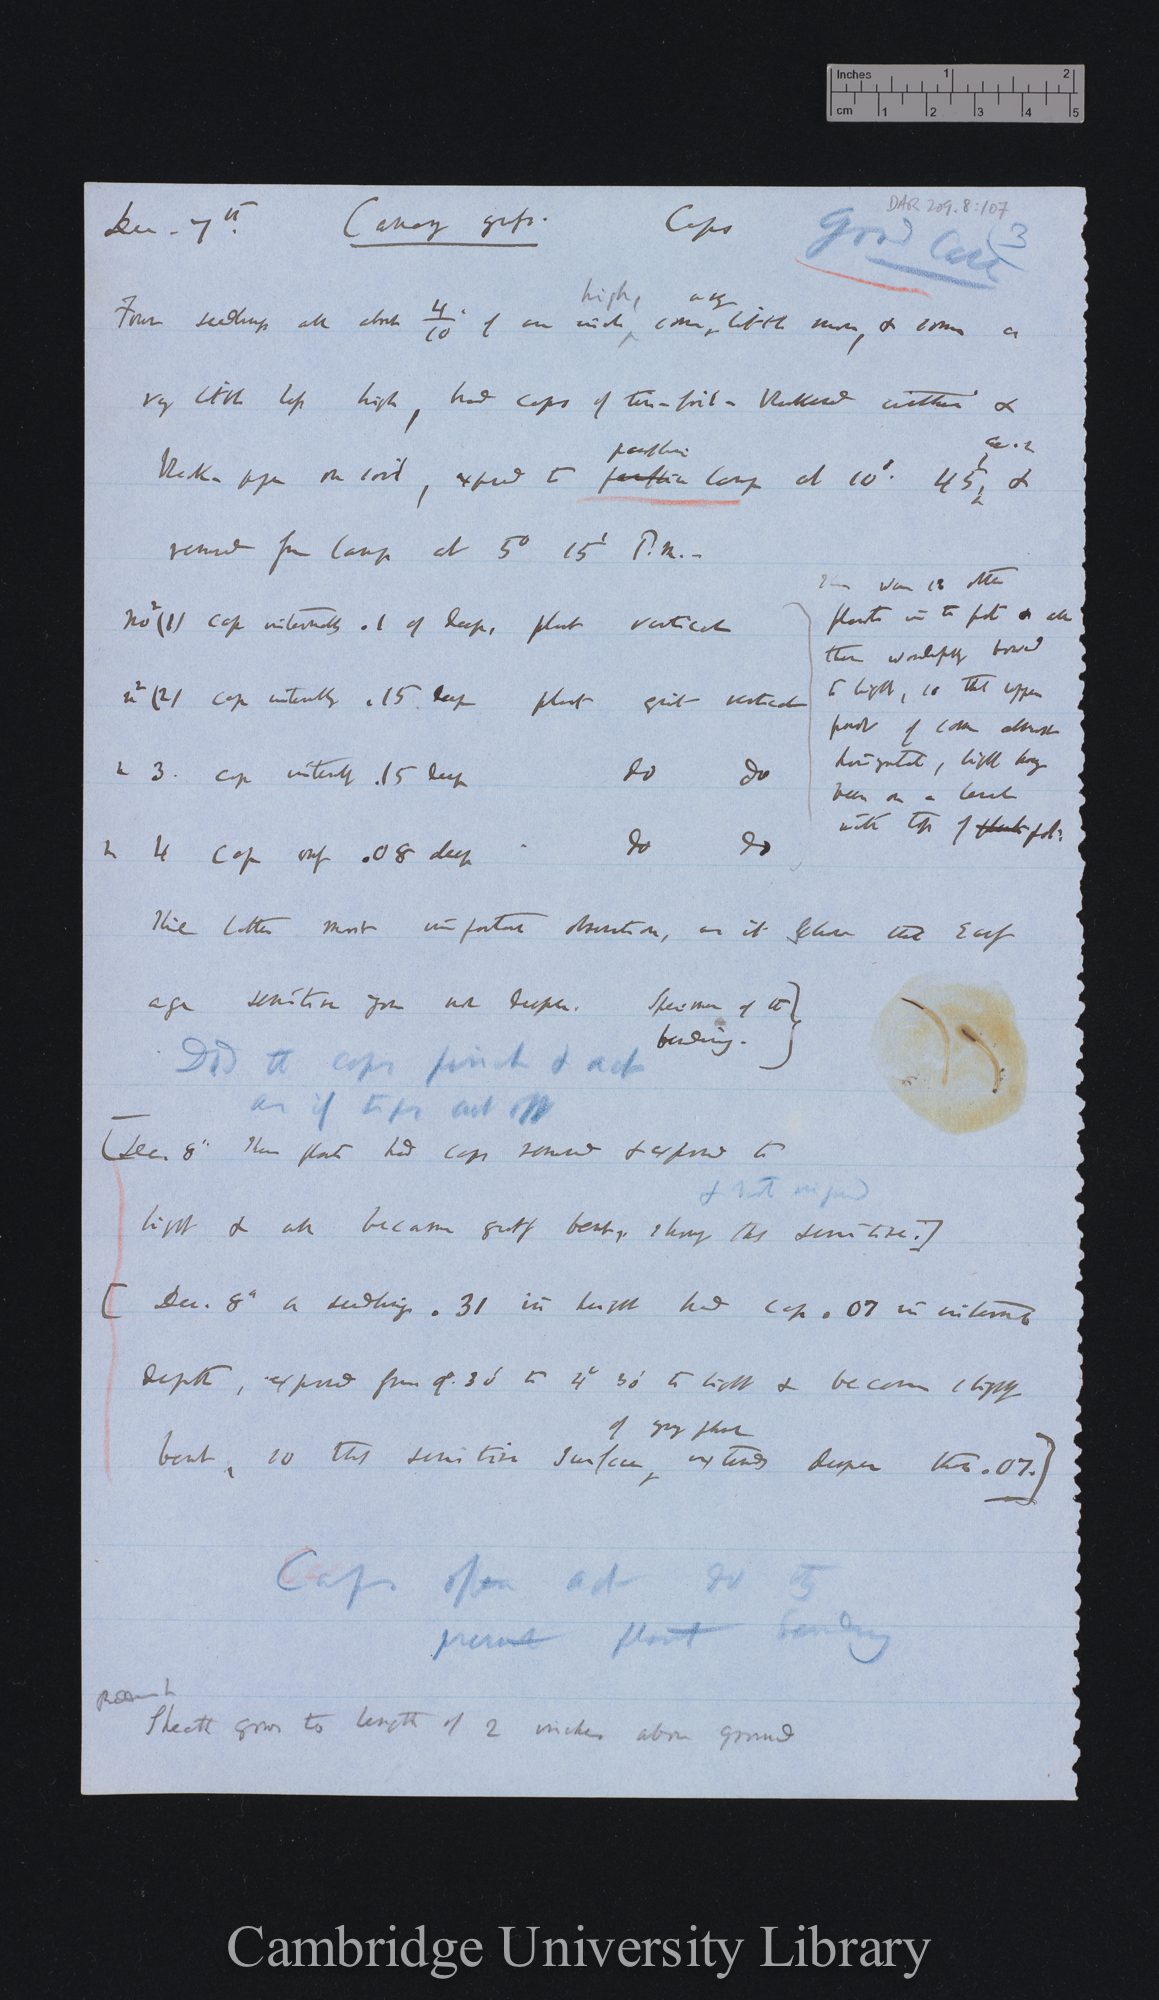 Inches 1 2
cm 1 2 3 4 5
DAR 209.8:107
Dec. 7th. Canary grass. Caps
Good Case (3
high, 
Four seedlings all about 4/10 of an inch, some little more, & some a
very little less high, had caps of tin-foil - blackened within &
Black paper on soil, exposed to lamp at 10° 45' &
paraffin
a.m
removed from lamp at 5° 15' P.m. -
No (1) cap internally .1 of deep, plant vertical
(2) cap internally .15 deep plant quite vertical
3. cap internally .15 deep do do
4 cap only .08 deep do do
There were 13 other
plants in the pot & all
these wonderfully bowed
to light, so that upper
part of some almost
horizontal, light having
been on a level
with top of plants pot.
This latter most important observation, as it shows that early
age sensitive zone not deeper. Specimen of the
bending. }
Did the caps pinch & act
as if tips cut off
[Dec. 8th These plants had caps removed & exposed to
& not injured
light & all became greatly bent, showing tips sensitive.]
[Dec. 8th a seedling .31 in height had cap .07 in internal
depth, exposed from 9.30' to 4° 30' to light & became slightly
of young plant
bent, so that sensitive surface, extends deeper than .07.]
Caps often act so as to
prevent plant bending
Sheath grows to length of 2 inches above ground
Cambridge University Library